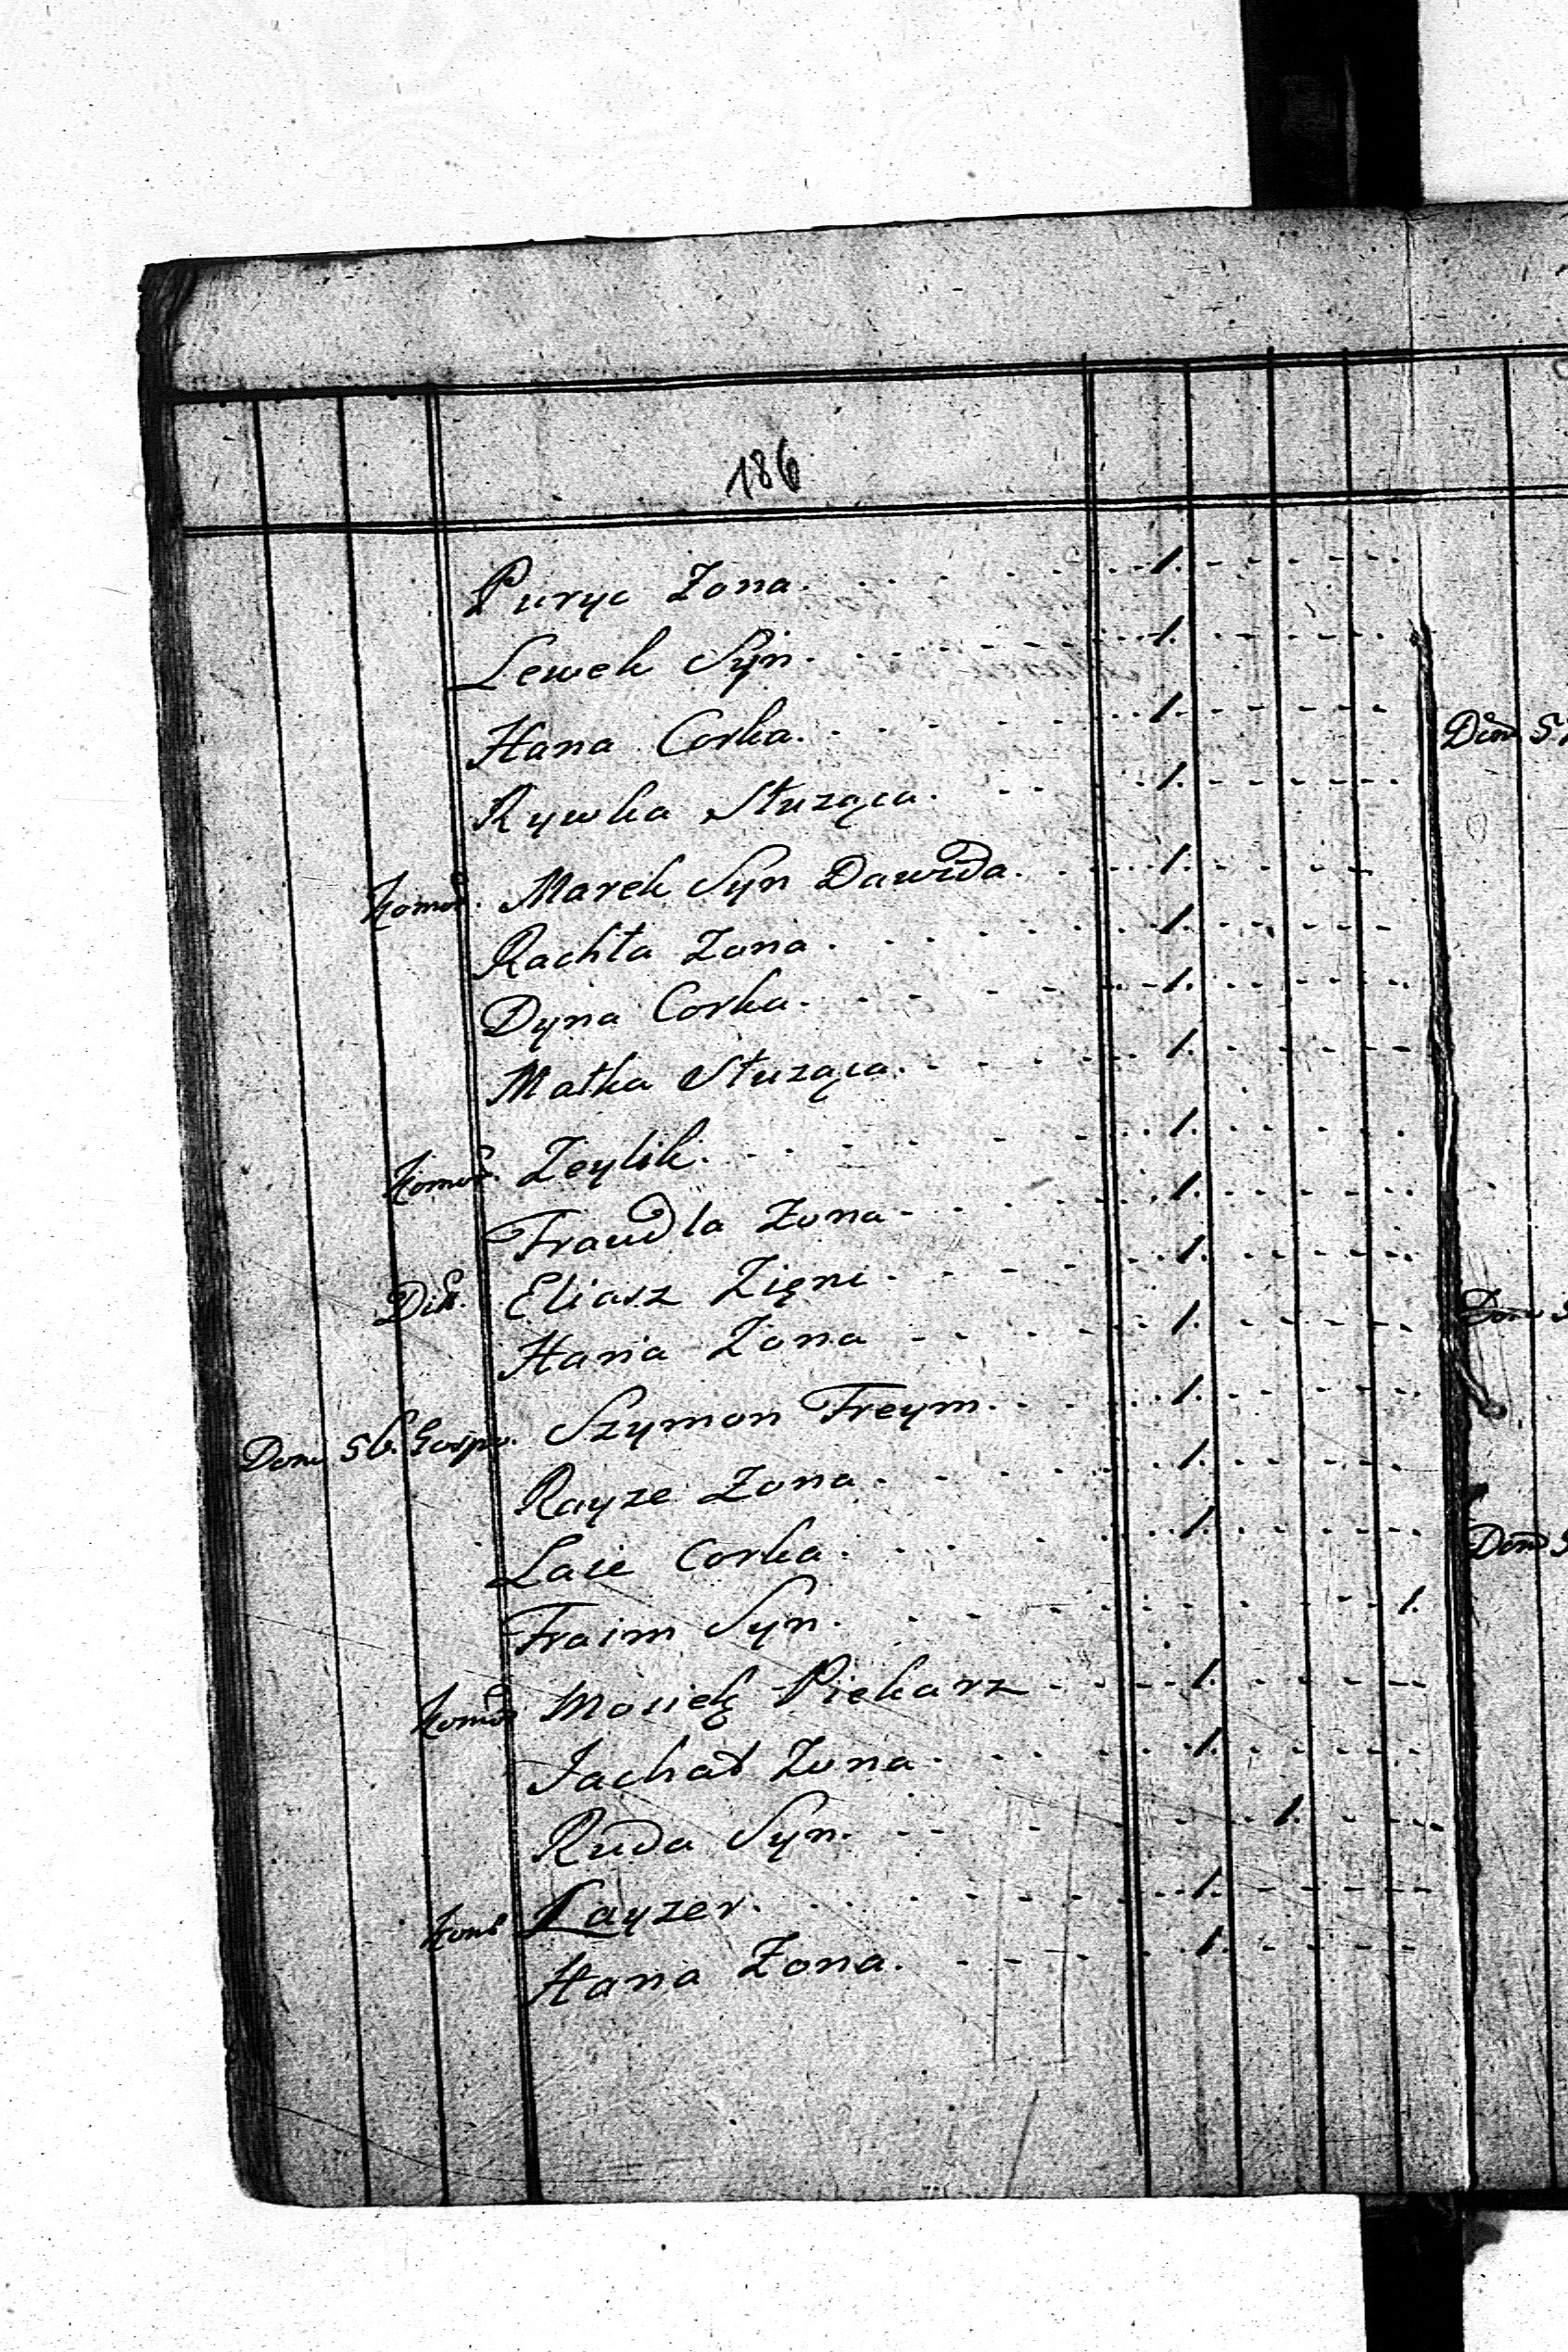 186
Puryc Zona . . . . . . . 1. - - - - -
Lewek Syn . . . . . . . 1. - - - - -
Hana Corka . . . . . . . 1. - - - - -
Rywka Służąca . . . . 1. - - - - -
Komor. Marek Syn Dawida . . . . 1. - - - -
Rachla Zona . . . . . . . 1. - - - - -
Dyna Corka . . . . . . . 1. - - - - -
Małka Służąca . . . . . . 1. - - - - -
Komor. Zeylik . . . . . . . 1. - - - - -
Fraudla Zona . . . . . . 1. - - - - -
Eliasz Zięnc . . . . . . 1. - - - - -
Hana Zona . . . . . . 1. - - - - -
Dom 56. Gospo. Szymon Freym . . . . . 1. - - - - -
Rayze Zona . . . . . . 1. - - - - -
Laie Corka . . . . . . 1. - - - - -
Fraim Syn . . . . . . . . . . 1.
Komor Mosiek Piekarz . . . . 1. - - - - -
Jachat Zona . . . . . . 1. - - - - -
Ruda Syn . . . . . . . 1. - - - -
Kom Layzer . . . . . . . 1. - - - - -
Hana Zona . . . . . . 1. - - - - -
Dom 5
Dom
Dom 5